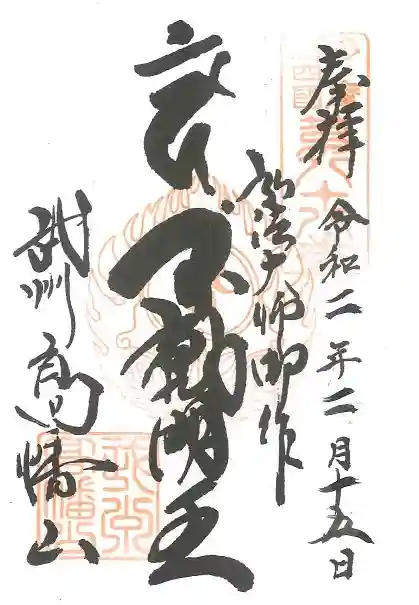 奉拝 令和二年二月十五日
弘法大師御作
不動明王
武州 高幡山